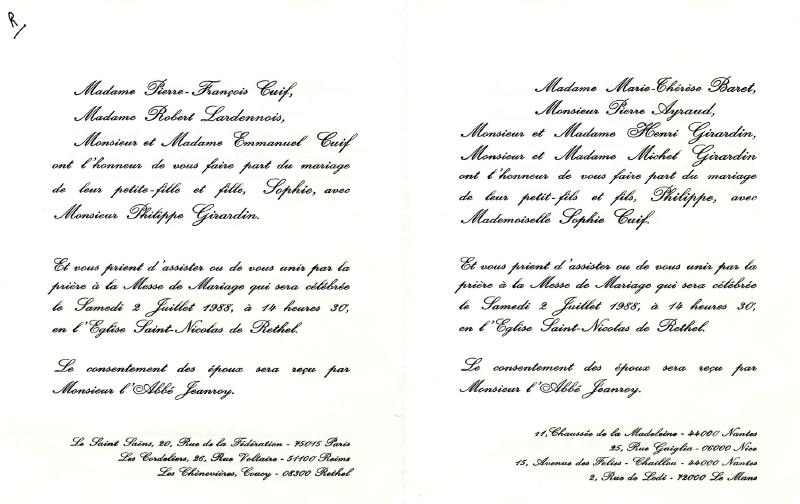 R
Madame Pierre-François Cuif,
Madame Robert Lardennois,
Monsieur et Madame Emmanuel Cuif
ont l'honneur de vous faire part du mariage
de leur petite-fille et fille, Sophie, avec
Monsieur Philippe Girardin.
Et vous prient d'assister ou de vous unir par la
prière à la Messe de Mariage qui sera célébrée
le Samedi 2 Juillet 1988, à 14 heures 30,
en l'Eglise Saint-Nicolas de Rethel.
Le consentement des époux sera reçu par
Monsieur l'Abbé Jeanroy.
Le Saint Saëns, 20, Rue de la Fédération - 75015 Paris
Les Cordeliers, 26, Rue Voltaire - 51100 Reims
Les Chènevières, Coucy - 08300 Rethel
Madame Marie-Thérèse Baret,
Monsieur Pierre Ayraud,
Monsieur et Madame Henri Girardin,
Monsieur et Madame Michel Girardin
ont l'honneur de vous faire part du mariage
de leur petit-fils et fils, Philippe, avec
Mademoiselle Sophie Cuif.
Et vous prient d'assister ou de vous unir par la
prière à la Messe de Mariage qui sera célébrée
le Samedi 2 Juillet 1988, à 14 heures 30,
en l'Eglise Saint-Nicolas de Rethel.
Le consentement des époux sera reçu par
Monsieur l'Abbé Jeanroy.
11, Chaussée de la Madeleine - 44000 Nantes
25, Rue Guiglia - 06000 Nice
15, Avenue des Folies - Chaillou - 44000 Nantes
2, Rue de Lodi - 72000 Le Mans